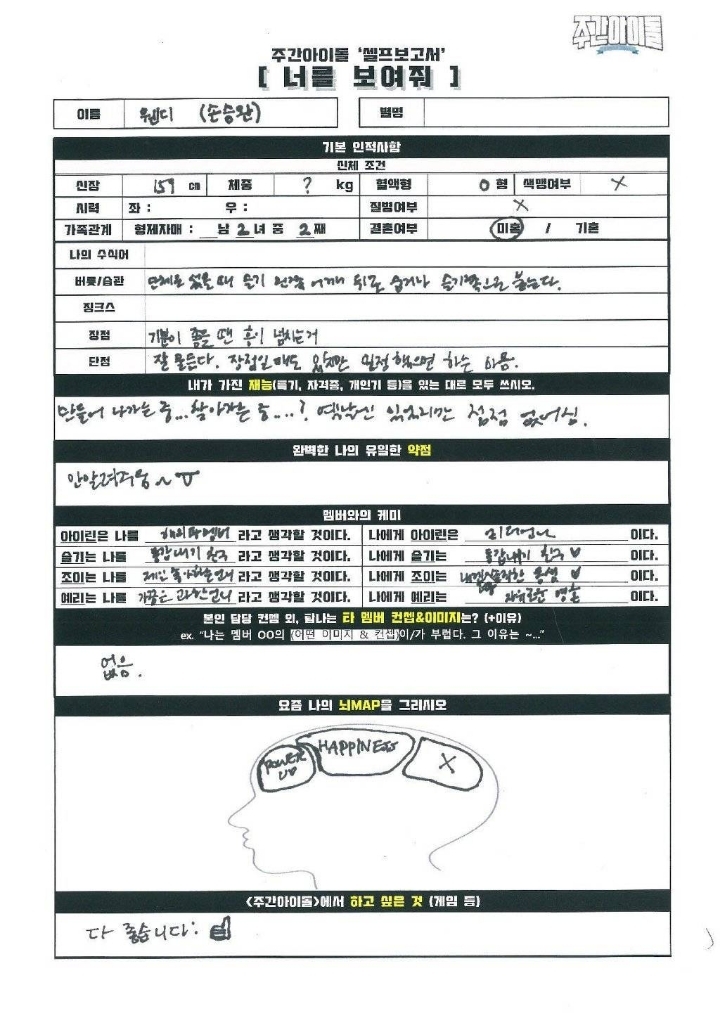 주간아이돌
주간아이돌 '셀프보고서'
[ 너를 보여줘 ]
이름 웬디 (손승완) 별명
기본 인적사항
신체 조건
신장 159 cm 체중 ? kg 혈액형 O 형 색맹여부 X
시력 좌 : 우 : 질병여부 X
가족관계 형제자매 : 남 2 녀 중 2 째 결혼여부 미혼 / 기혼
나의 수식어
버릇/습관 단체로 섰을 때 슬기 왼쪽 어깨 뒤로 숨거나 슬기쪽으로 붙는다.
징크스
장점 기분이 좋을 땐 흥이 넘치는거
단점 잘 못든다. 장점일때도 있지만
내가 가진 재능(특기, 자격증, 개인기 등)을 있는 대로 모두 쓰시오.
만들어 나가는 중...찾아가는 중....? 옛날엔 있었지만 점점 없어짐.
완벽한 나의 유일한 약점
안알려줘용~ㅠ
멤버와의 케미
아이린은 나를 해외파멤버 라고 생각할 것이다. 나에게 아이린은 리더언니 이다.
슬기는 나를 동갑내기 친구 라고 생각할 것이다. 나에게 슬기는 동갑내기 친구♥ 이다.
조이는 나를 제일 좋아하는언니 라고 생각할 것이다. 나에게 조이는 동생 ♥ 이다.
예리는 나를 가끔은 언니 라고 생각할 것이다. 나에게 예리는 자유로운 영혼 이다.
본인 담당 컨셉 외, 탐나는 타 멤버 컨셉&이미지는? (+이유)
ex. "나는 멤버 OO의 (어떤 이미지 & 컨셉)이/가 부럽다. 그 이유는 ~..."
없음.
요즘 나의 뇌MAP을 그리시오
POWER UP HAPPINESS X
<주간아이돌>에서 하고 싶은 것 (게임 등)
다 좋습니다: